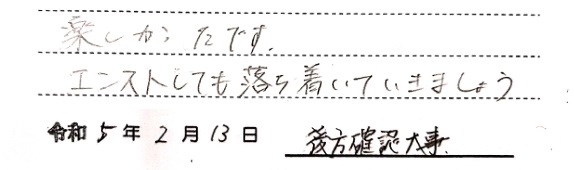 楽しかったです.
エンストしても落ち着いていきましょう
令和5年2月13日 後方確認大事